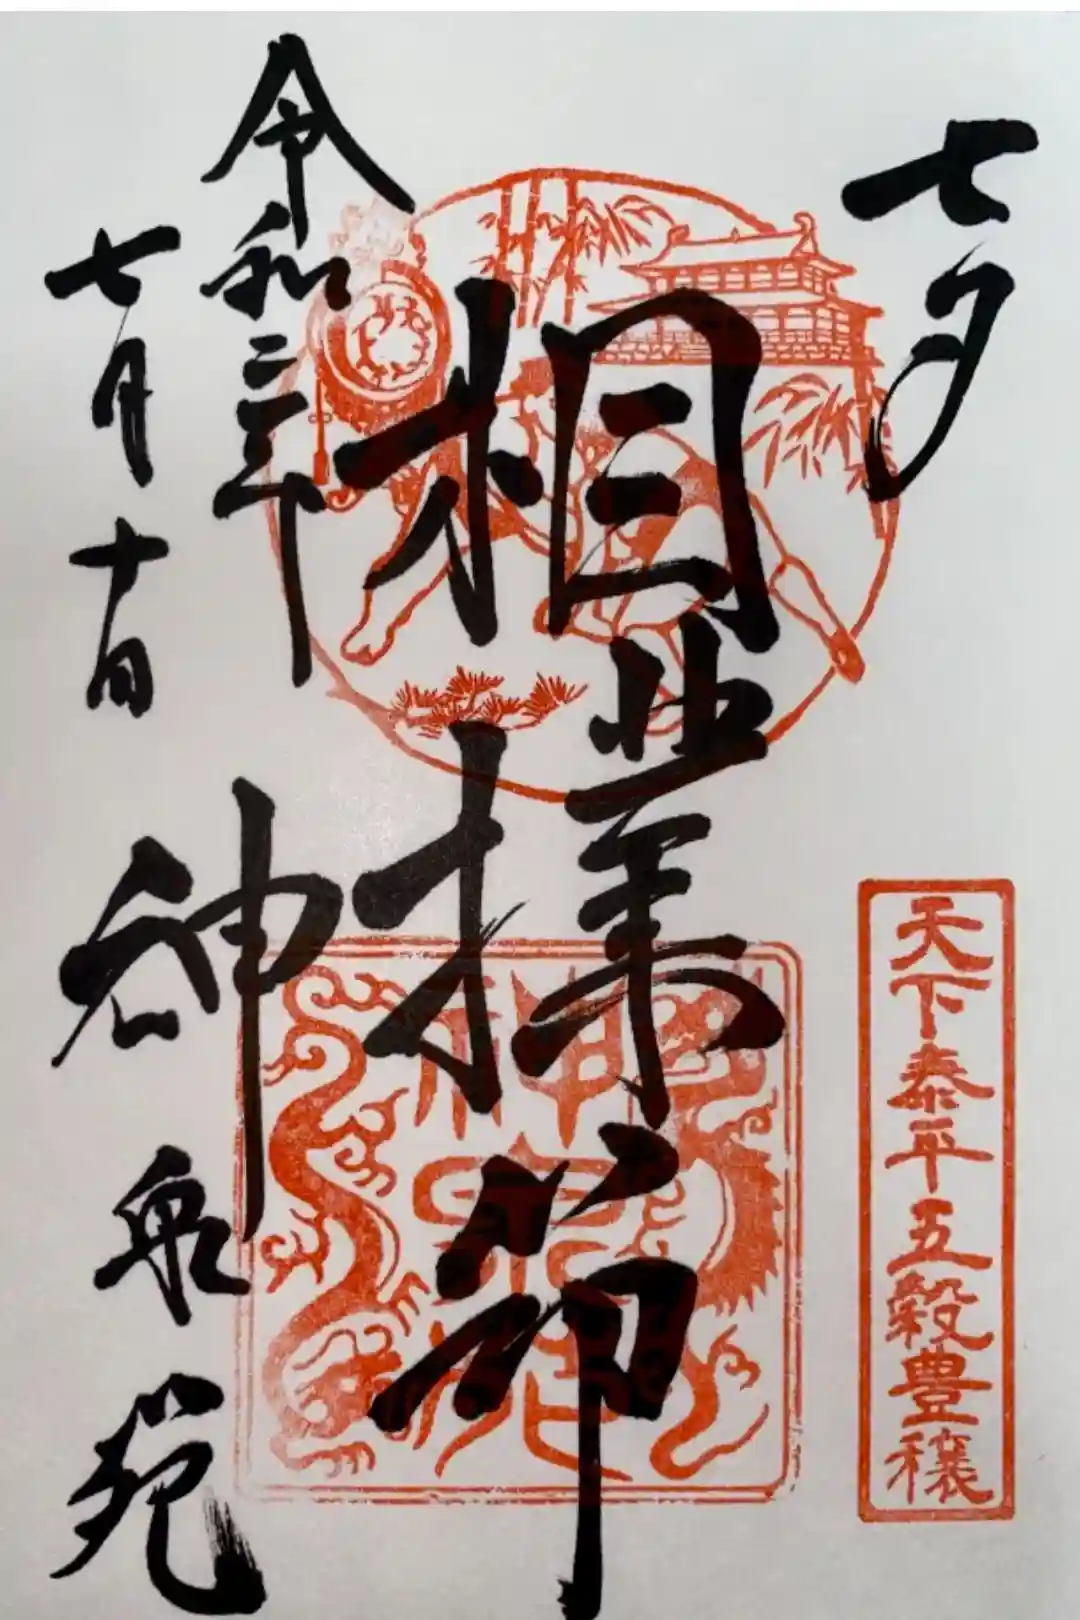 七夕
天下泰平五穀豊穣
相撲節
神泉苑
令和二年
七月十日
神泉苑